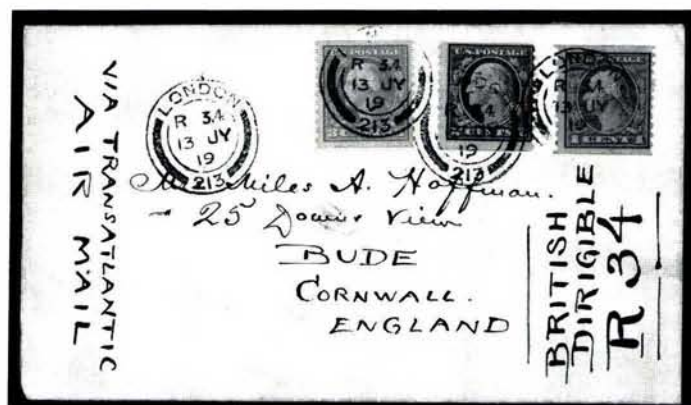 VIA TRANSATLANTIC
AIR MAIL
LONDON
R 34
13 JY
19
213
U.S. POSTAGE
R 34
13 JY
19
213
CENTS
19
213
LOND
R 34
13 JY
CENTS
Mr Miles A. Hoffman.
- 25 Downs View
BUDE
CORNWALL.
ENGLAND
BRITISH
DIRIGIBLE
R 34